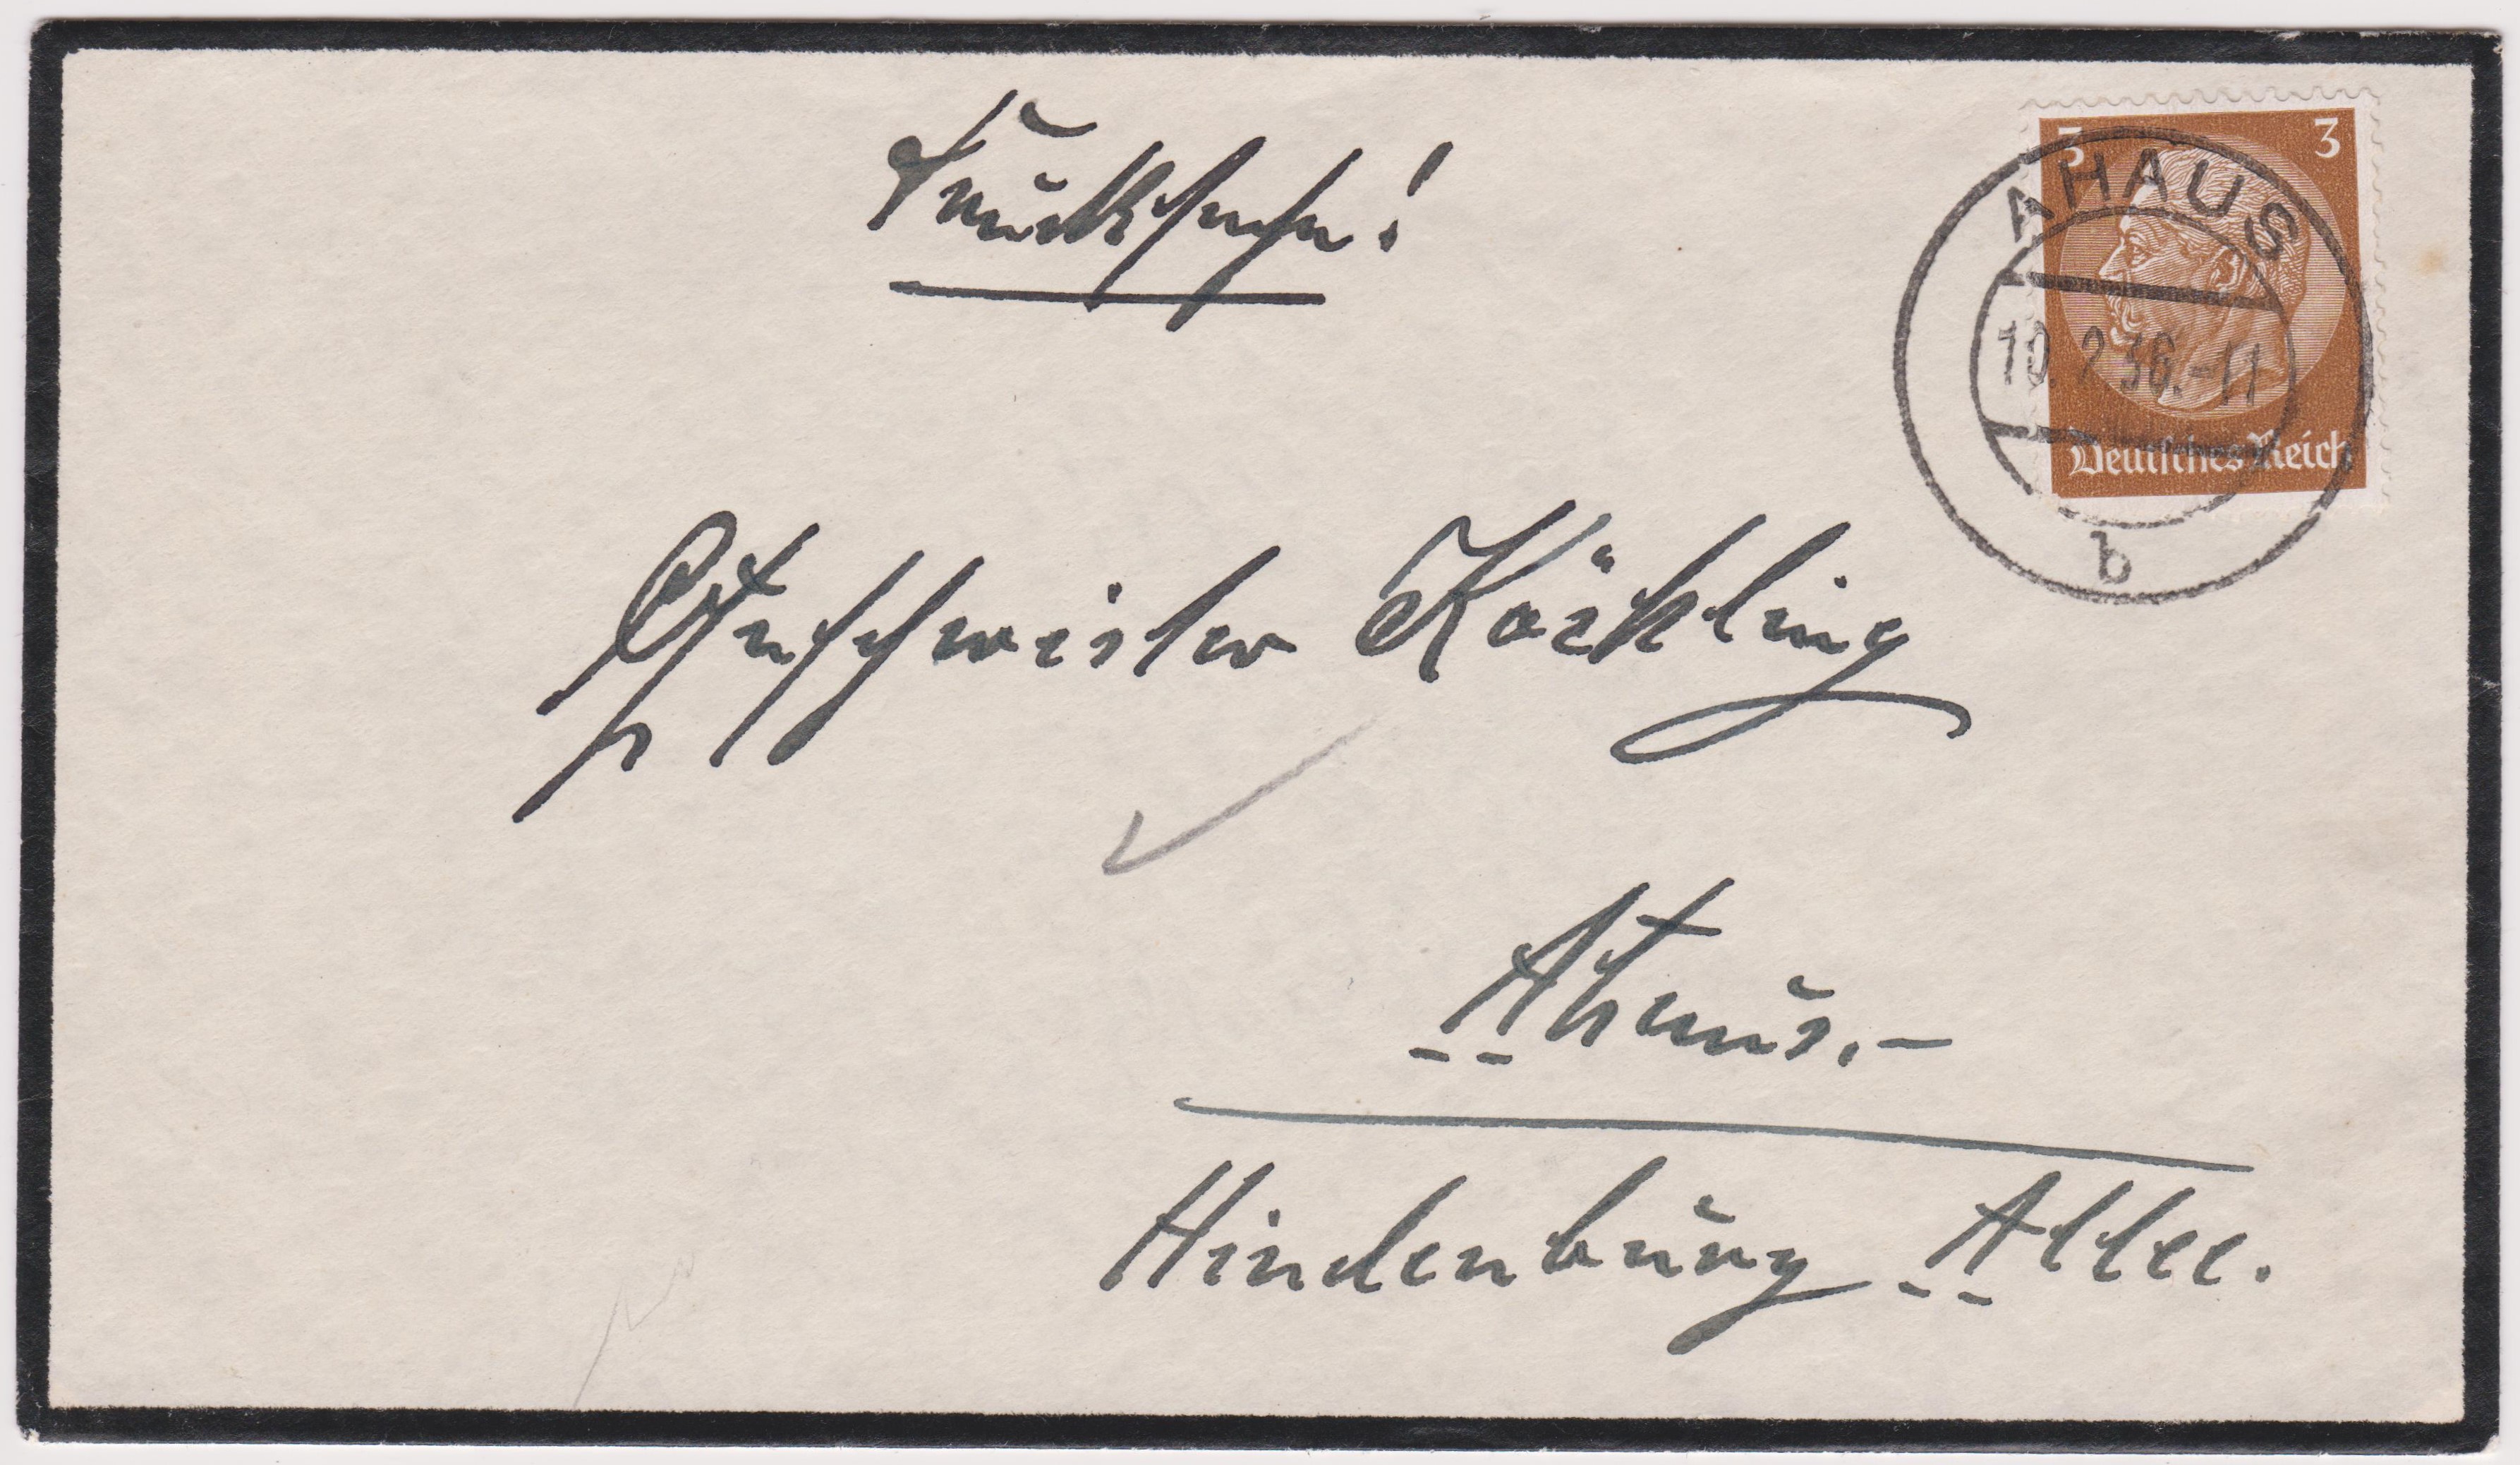 Drucksache!
3 3
AHAUS
10.2.36.-11
Deutsches Reich
b
Geschwister Köckling
Ahaus.-
Hindenburg Allee.